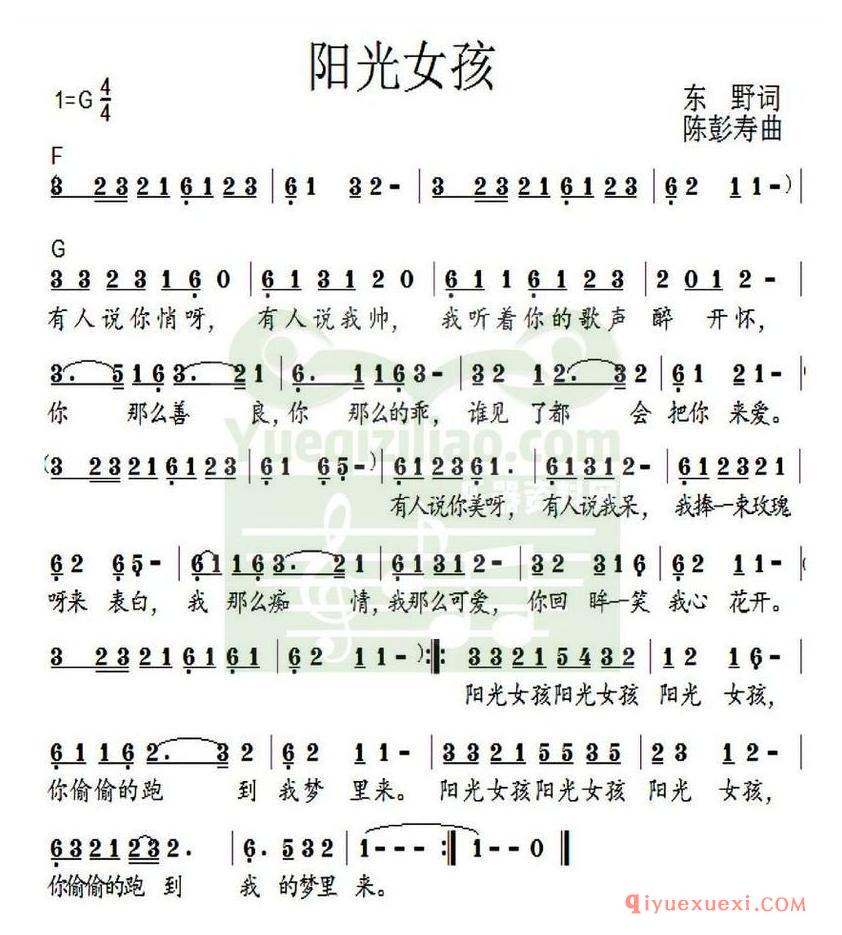 阳光女孩
1=G 4/4
东 野词
陈彭寿曲
F
3 23216123 | 61 32- | 3 23216123 | 62 11-) |
G
3323160 | 613120 | 6116123 | 2012- |
有人说你悄呀， 有人说我帅， 我听着你的歌声 醉 开怀，
3. 5163. 21 | 6. 1163- | 32 12. 32 | 61 21- |
你 那么善 良，你 那么的乖，谁见 了都 会 把你 来爱。
(3 23216123 | 61 65-) | 612361. | 61312- | 612321
有人说你美呀， 有人说我呆， 我捧一束玫瑰
62 65- | 61163. 21 | 61312- | 32 316 | 62 11- |
呀来 表白， 我 那么痴 情，我那么可爱， 你回 眸一笑 我心 花开。
3 23216161 | 62 11-) :||: 33215432 | 12 16- |
阳光女孩阳光女孩 阳光 女孩，
61162. 32 | 62 11- | 33215535 | 23 12- |
你偷偷的跑 到 我梦 里来。 阳光女孩阳光女孩 阳光 女孩，
6321232. | 6. 532 | 1--- :|| 1--0 ||
你偷偷的跑 到 我 的梦里 来。
Yueqiziliao.com
乐器资料网
qiyuexuexi.com